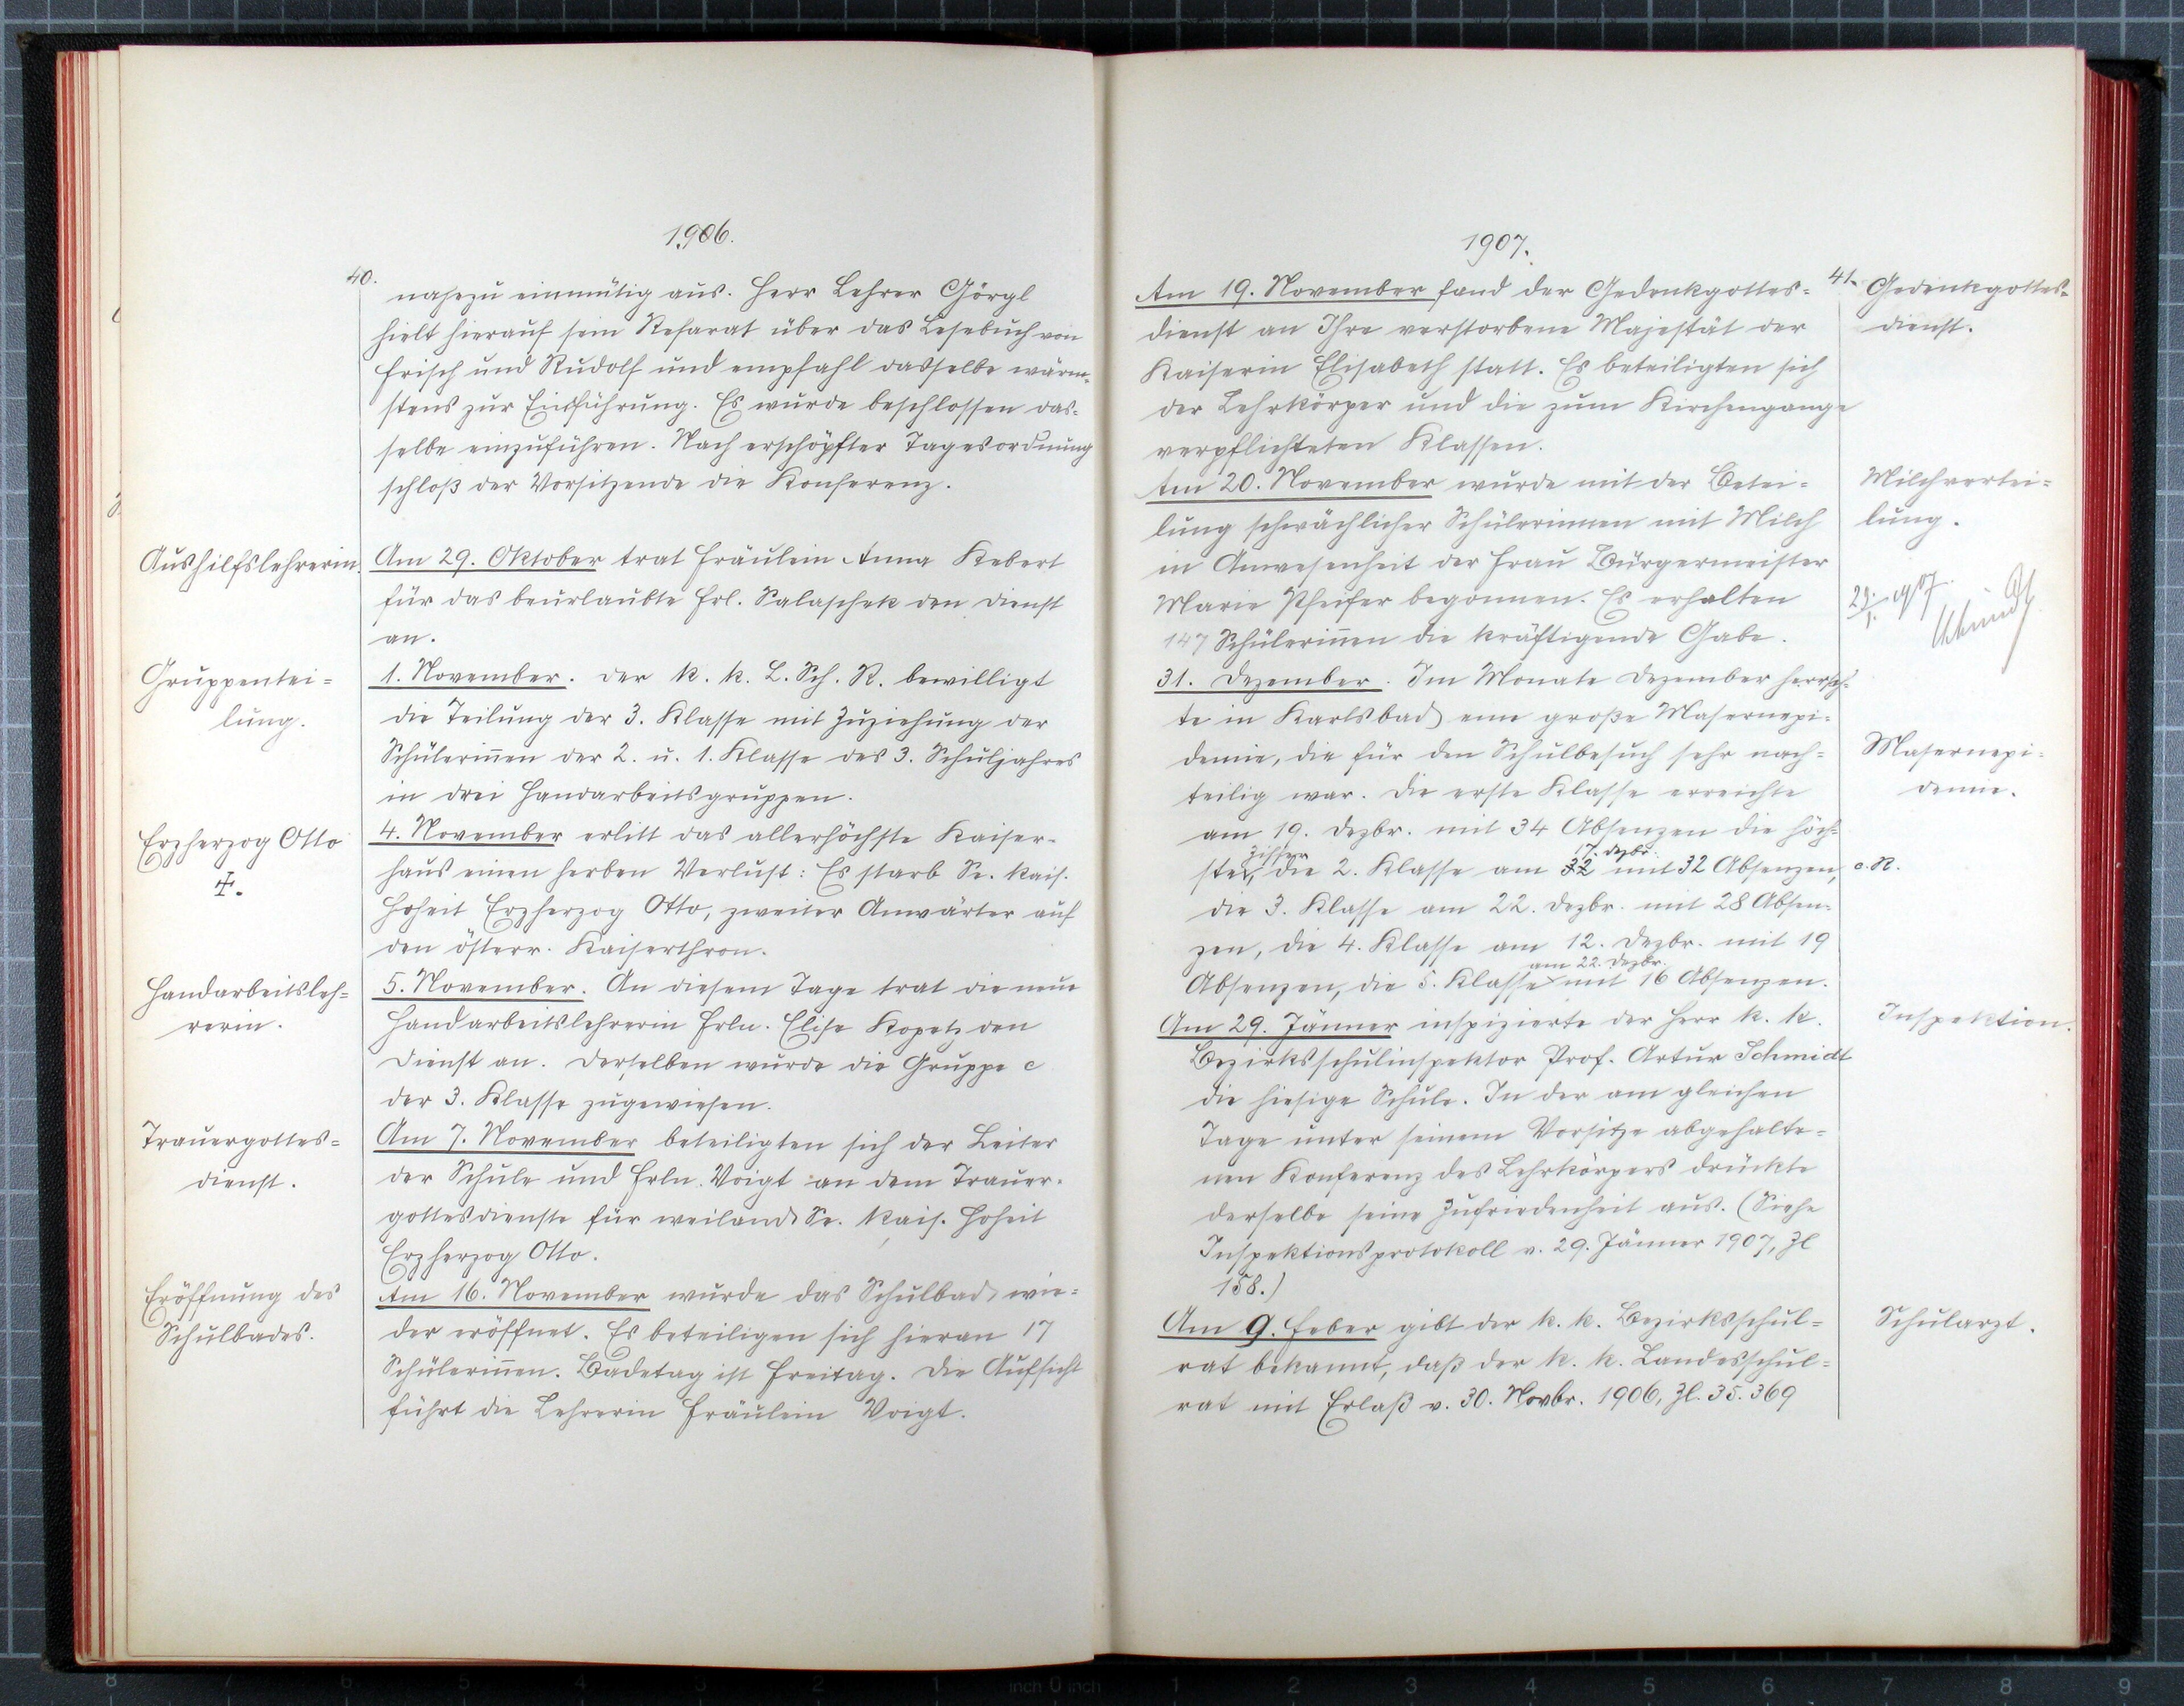 1906.
40.
nahezu einmütig aus. Herr Lehrer Görgl
hielt hierauf sein Referat über das Lesebuch von
Frisch und Rudolf und empfahl dasselbe wärm-
stens zur Einführung. Es wurde beschlossen das-
selbe einzuführen. Nach erschöpfter Tagesordnung
schloß der Vorsitzende die Konferenz.
Aushilfslehrerin.
Am 29. Oktober trat Fräulein Anna Kebert
für das beurlaubte Frl. Salaschek den Dienst
an.
Gruppentei=
lung.
1. November. Der k. k. L. Sch. R. bewilligt
die Teilung der 3. Klasse mit Zuziehung der
Schülerin̄en der 2. u. 1. Klasse des 3. Schuljahres
in drei Handarbeitsgruppen.
Erzherzog Otto
‡.
4. November erlitt das allerhöchste Kaiser-
haus einen herben Verlust: Es starb Se. kais.
Hoheit Erzherzog Otto, zweiter Anwärter auf
den österr. Kaiserthron.
Handarbeitsleh=
rerin.
5. November. An diesem Tage trat die neue
Handarbeitslehrerin Frln. Elise Kopetz den
Dienst an. Derselben wurde die Gruppe c
der 3. Klasse zugewiesen.
Trauergottes=
dienst.
Am 7. November beteiligten sich der Leiter
der Schule und Frln. Voigt an dem Trauer-
gottesdienste für weiland Se. kais. Hoheit
Erzherzog Otto.
Eröffnung des
Schulbades.
Am 16. November wurde das Schulbad wie=
der eröffnet. Es beteiligen sich hieran 17
Schülerin̄en. Badetag ist Freitag. Die Aufsicht
führt die Lehrerin Fräulein Voigt.
1907.
41.
Am 19. November fand der Gedenkgottes=
dienst an Ihre verstorbene Majestät der
Kaiserin Elisabeth statt. Es beteiligten sich
der Lehrkörper und die zum Kirchengange
verpflichteten Klassen.
Gedenkgottes=
dienst.
Am 20. November wurde mit der Betei=
lung schwächlicher Schülerinnen mit Milch
in Anwesenheit der Frau Bürgermeister
Marie Pfeifer begonnen. Es erhalten
147 Schülerin̄en die kräftigende Gabe.
Milchvertei=
lung.
29./I. 907
Schmidt
31. Dezember. Im Monate Dezember herrsch-
te in Karlsbad eine große Masernepi=
demie, die für den Schulbesuch sehr nach=
teilig war. Die erste Klasse erreichte
am 19. Dezbr. mit 34 Absenzen die höch=
Ziffer 17. Dezbr.
ste, die 2. Klasse am 32 mit 32 Absenzen,
die 3. Klasse am 22. Dezbr. mit 28 Absen-
zen, die 4. Klasse am 12. Dezbr. mit 19
am 22. Dezbr.
Absenzen, die 5. Klasse mit 16 Absenzen.
Masernepi-
demie.
Am 29. Jänner inspizierte der Herr k. k.
Bezirksschulinspektor Prof. Artur Schmidt
die hiesige Schule. In der am gleichen
Tage unter seinem Vorsitze abgehalte=
nen Konferenz des Lehrkörpers drückte
derselbe seine Zufriedenheit aus. (Siehe
Inspektionsprotokoll v. 29. Jänner 1907, Zl
158.)
Inspektion.
Am 9. Feber gibt der k. k. Bezirksschul=
rat bekannt, daß der k. k. Landesschul=
rat mit Erlaß v. 30. Novbr. 1906, Zl. 35.369
Schularzt.